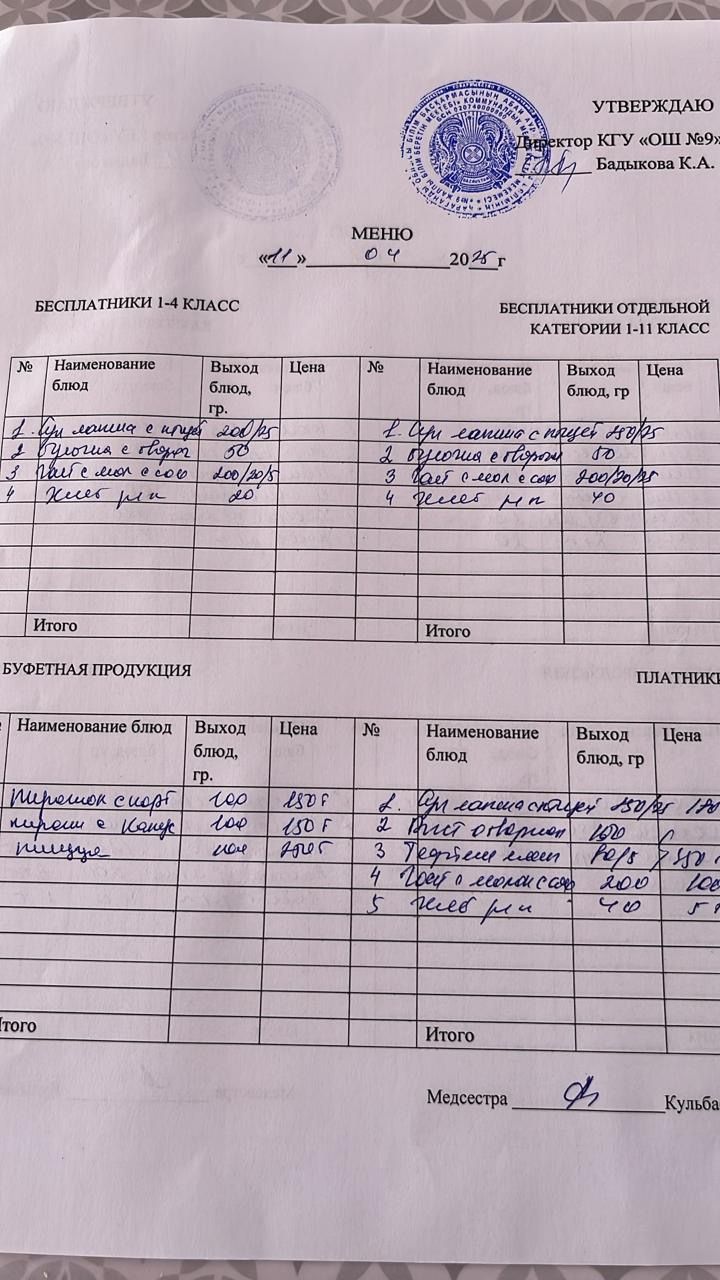 УТВЕРЖДАЮ
Директор КГУ «ОШ №9»
Бадыкова К.А.
МЕНЮ
«11» 04 2025 г
БЕСПЛАТНИКИ 1-4 КЛАСС
БЕСПЛАТНИКИ ОТДЕЛЬНОЙ
КАТЕГОРИИ 1-11 КЛАСС
№ Наименование блюд Выход блюд, гр. Цена
1. Суп лапша с птицей 200/25
2 булочка с творог 50
3 чай с мол с сах 200/20/5
4 Хлеб рж п 20
Итого
№ Наименование блюд Выход блюд, гр Цена
1. Суп лапша с птицей 250/25
2 булочка с творогом 50
3 чай с мол с сах
4 Хлеб рж п 40
Итого
БУФЕТНАЯ ПРОДУКЦИЯ
Наименование блюд Выход блюд, гр. Цена
Пирожок с карт 100 150 т
пирожк с Капус 100 150 т
пицца 100
Итого
ПЛАТНИКИ
№ Наименование блюд Выход блюд, гр Цена
1. Суп лапша с птицей 250/25
2 Рис отварной 100
3 Тефтели 80/5
4 чай с молок с сах 200 100
5 Хлеб рж п 40 5
Итого
Медсестра Кульба